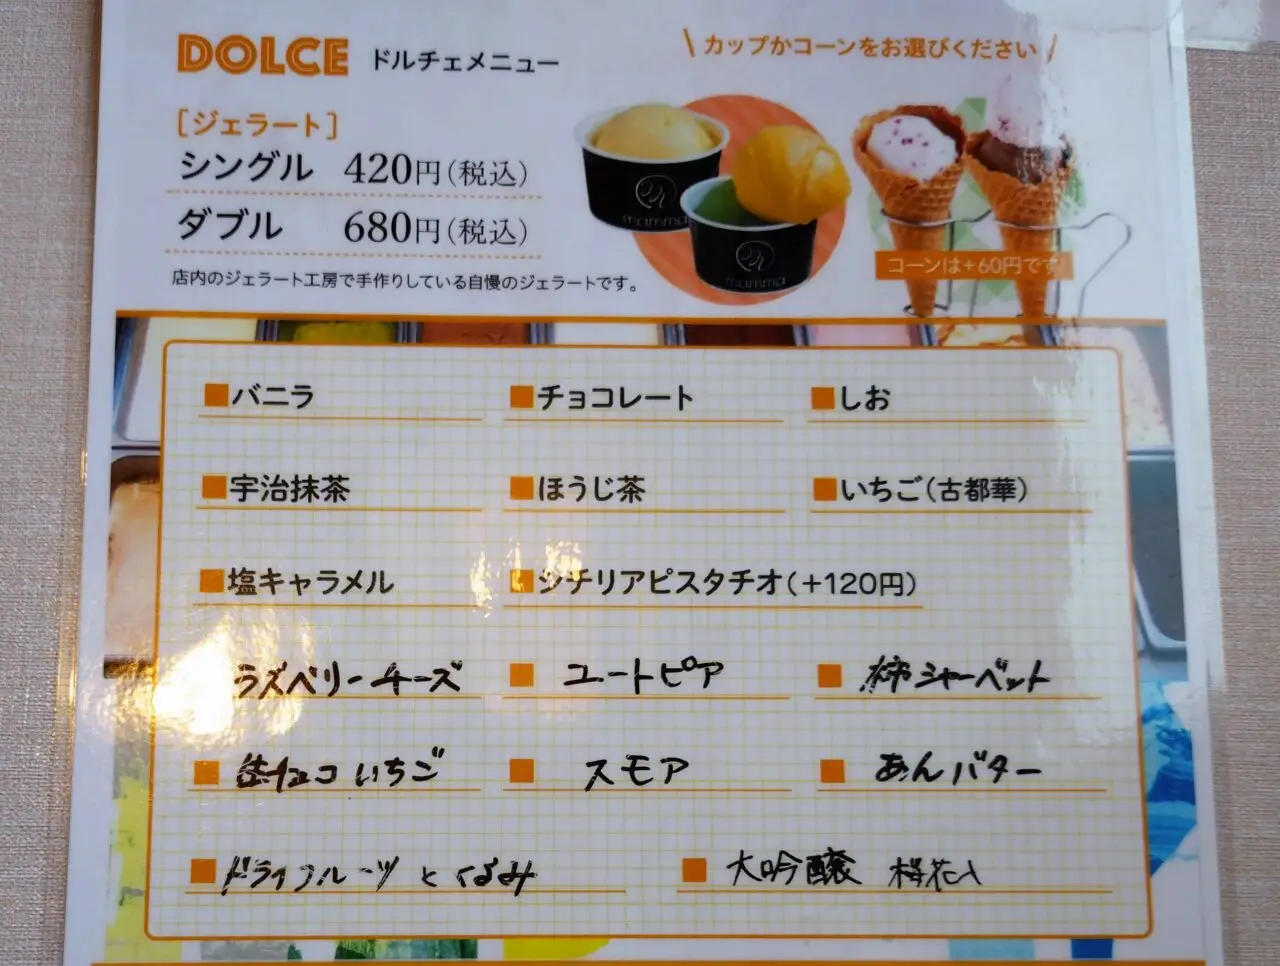 DOLCE ドルチェメニュー
\ カップかコーンをお選びください /
[ジェラート]
シングル 420円(税込)
ダブル 680円(税込)
mamma
mamma
コーンは+60円です
店内のジェラート工房で手作りしている自慢のジェラートです。
■バニラ ■チョコレート ■しお
■宇治抹茶 ■ほうじ茶 ■いちご(古都華)
■塩キャラメル ■シチリアピスタチオ(+120円)
ラズベリーチーズ ■ユートピア ■柿シャーベット
■生チョコいちご ■スモア ■あんバター
■ドライフルーツとくるみ ■大吟醸